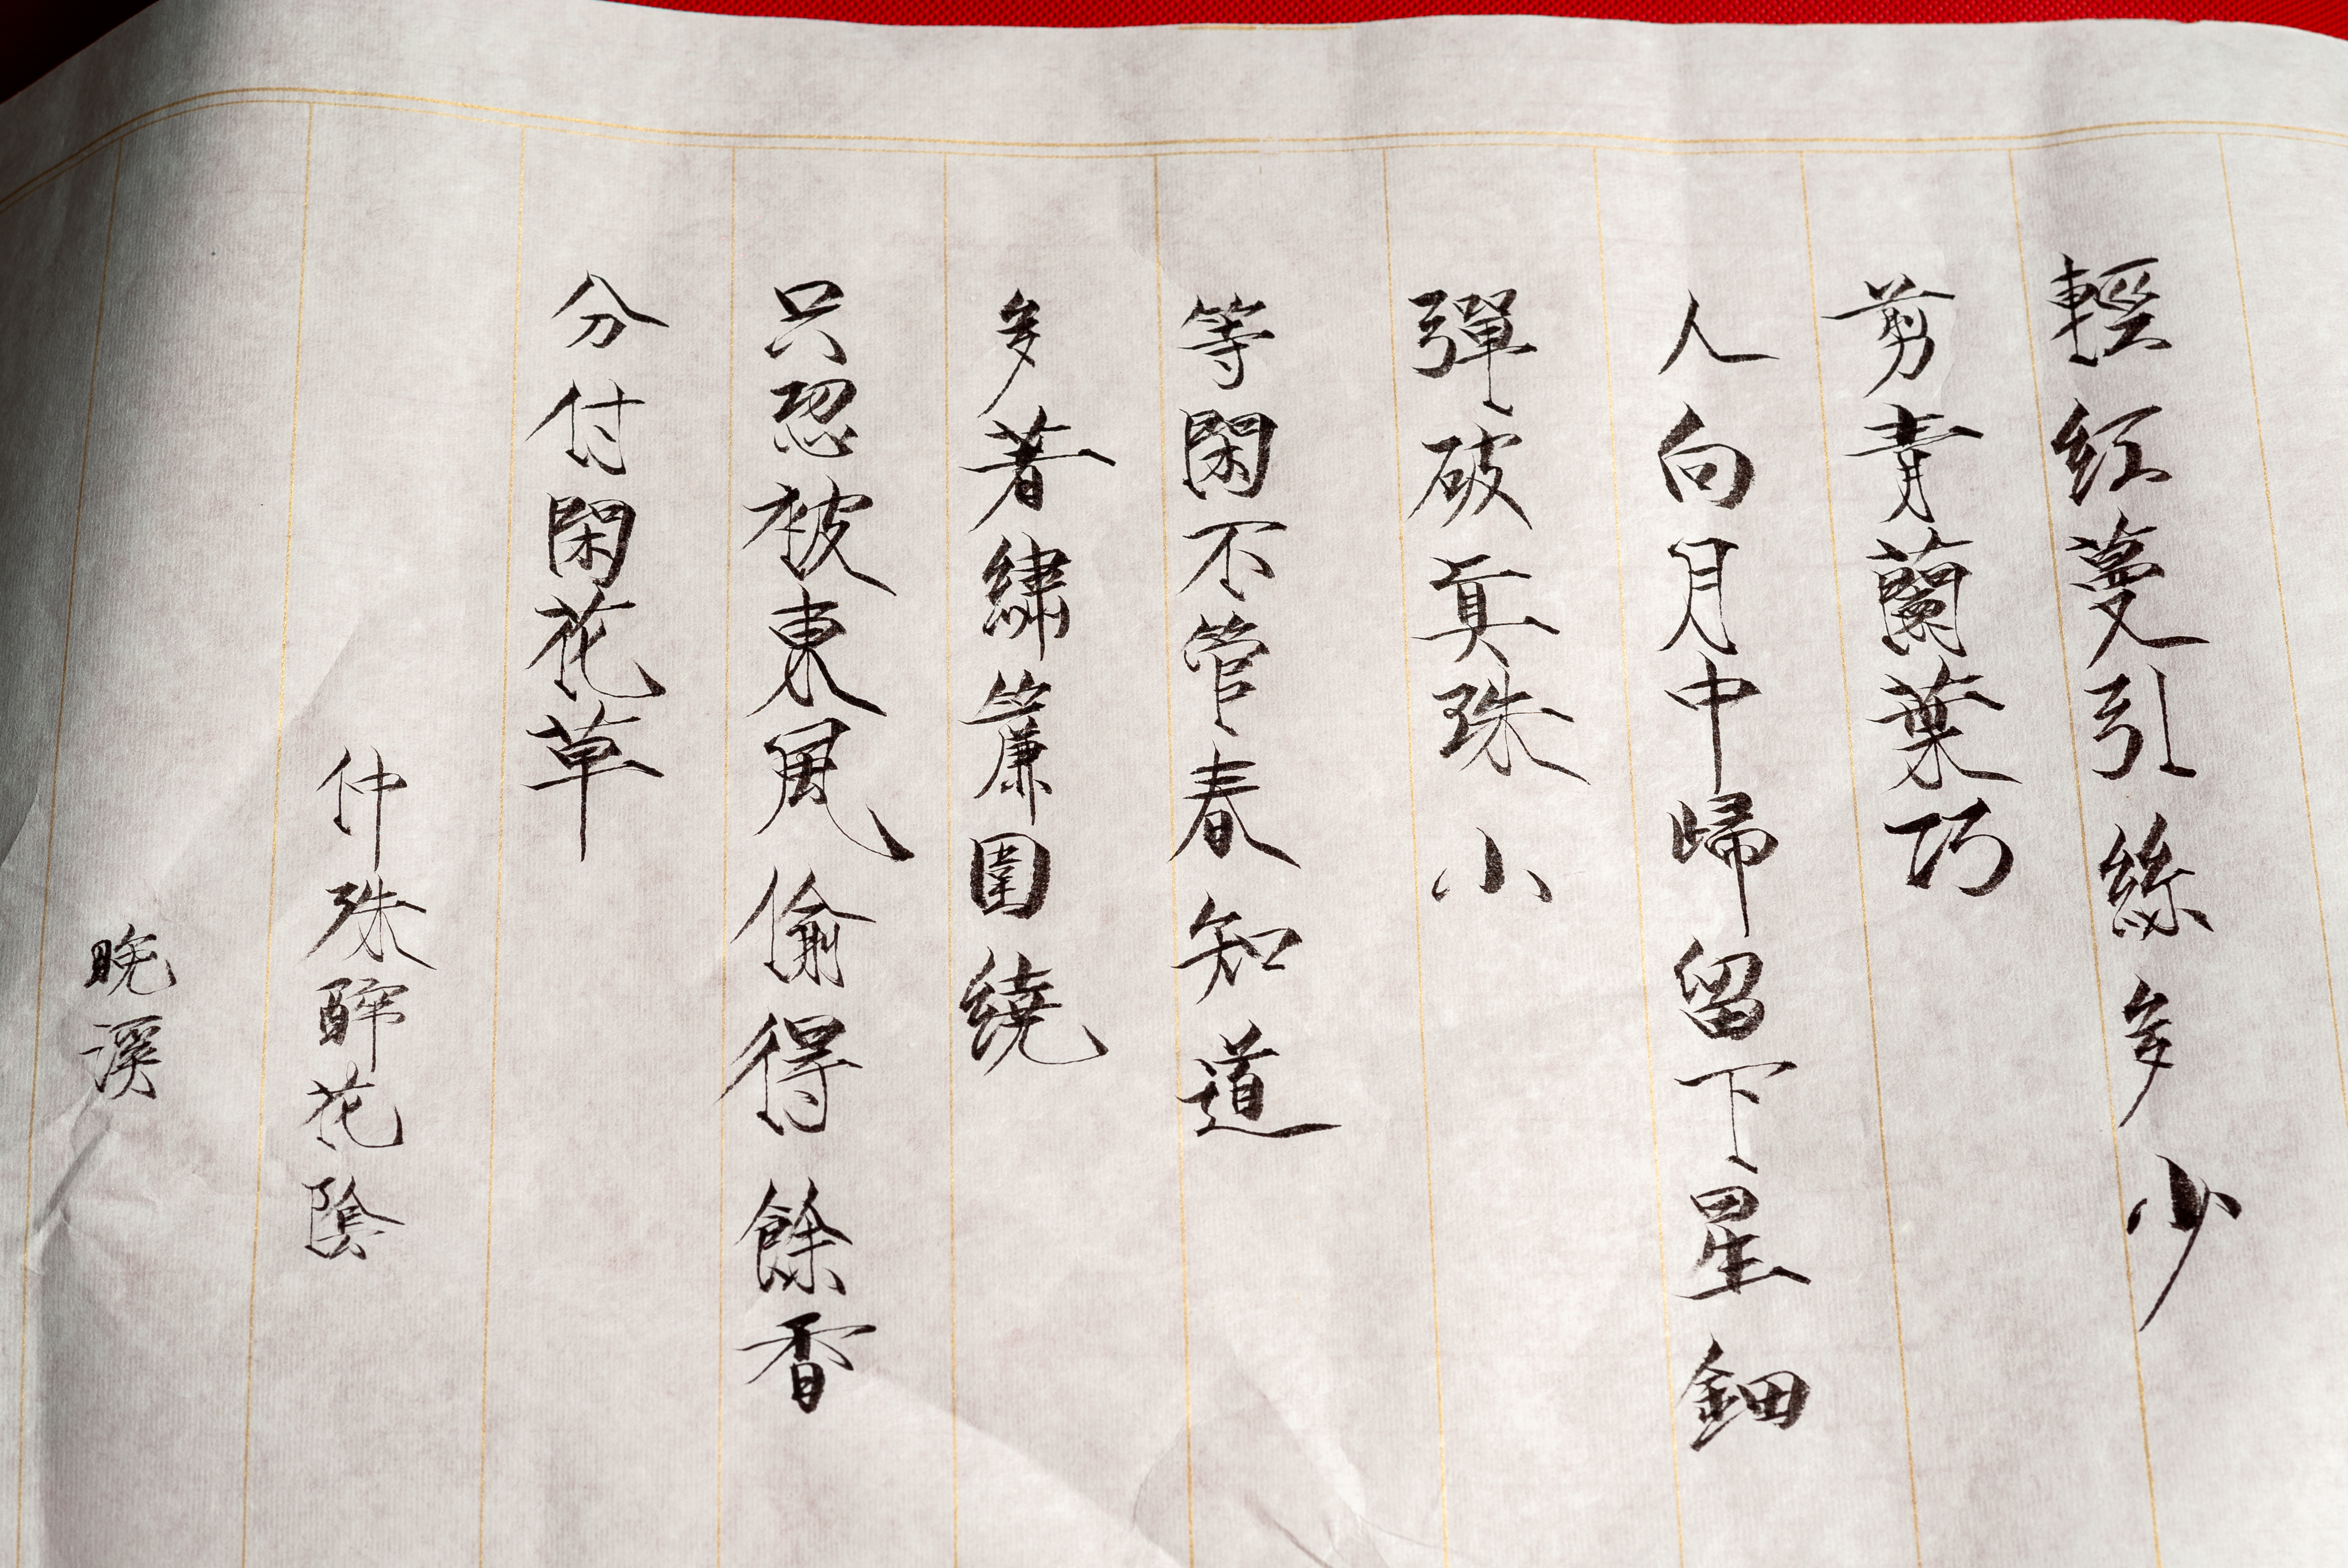 輕紅蔓引絲多少
剪青蘭葉巧
人向月中歸留下星鈿
彈破真珠小
等閑不管春知道
多著繡簾圍繞
只恐被東風偷得餘香
分付閑花草
仲殊醉花陰
晚溪